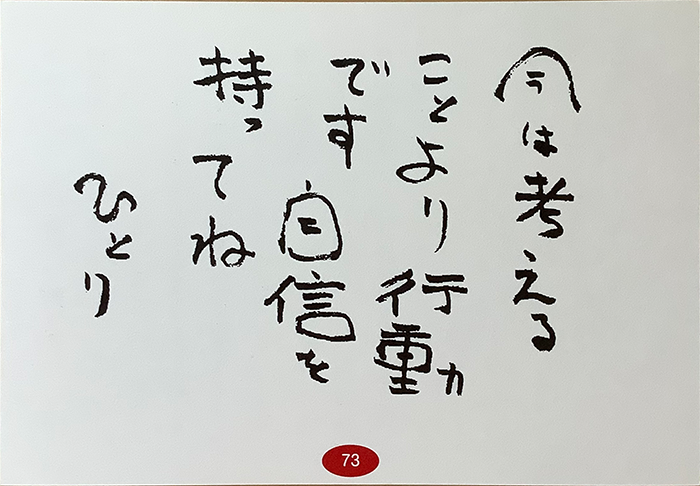 今は考える
ことより行動
です
自信を
持ってね
ひとり
73